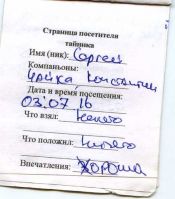 Страница посетителя
тайника
Имя (ник): Сергей
Компаньоны:
Чайка Константин
Дата и время посещения:
03.07.16
Что взял: ничего
Что положил: ничего
Впечатления: Хороша